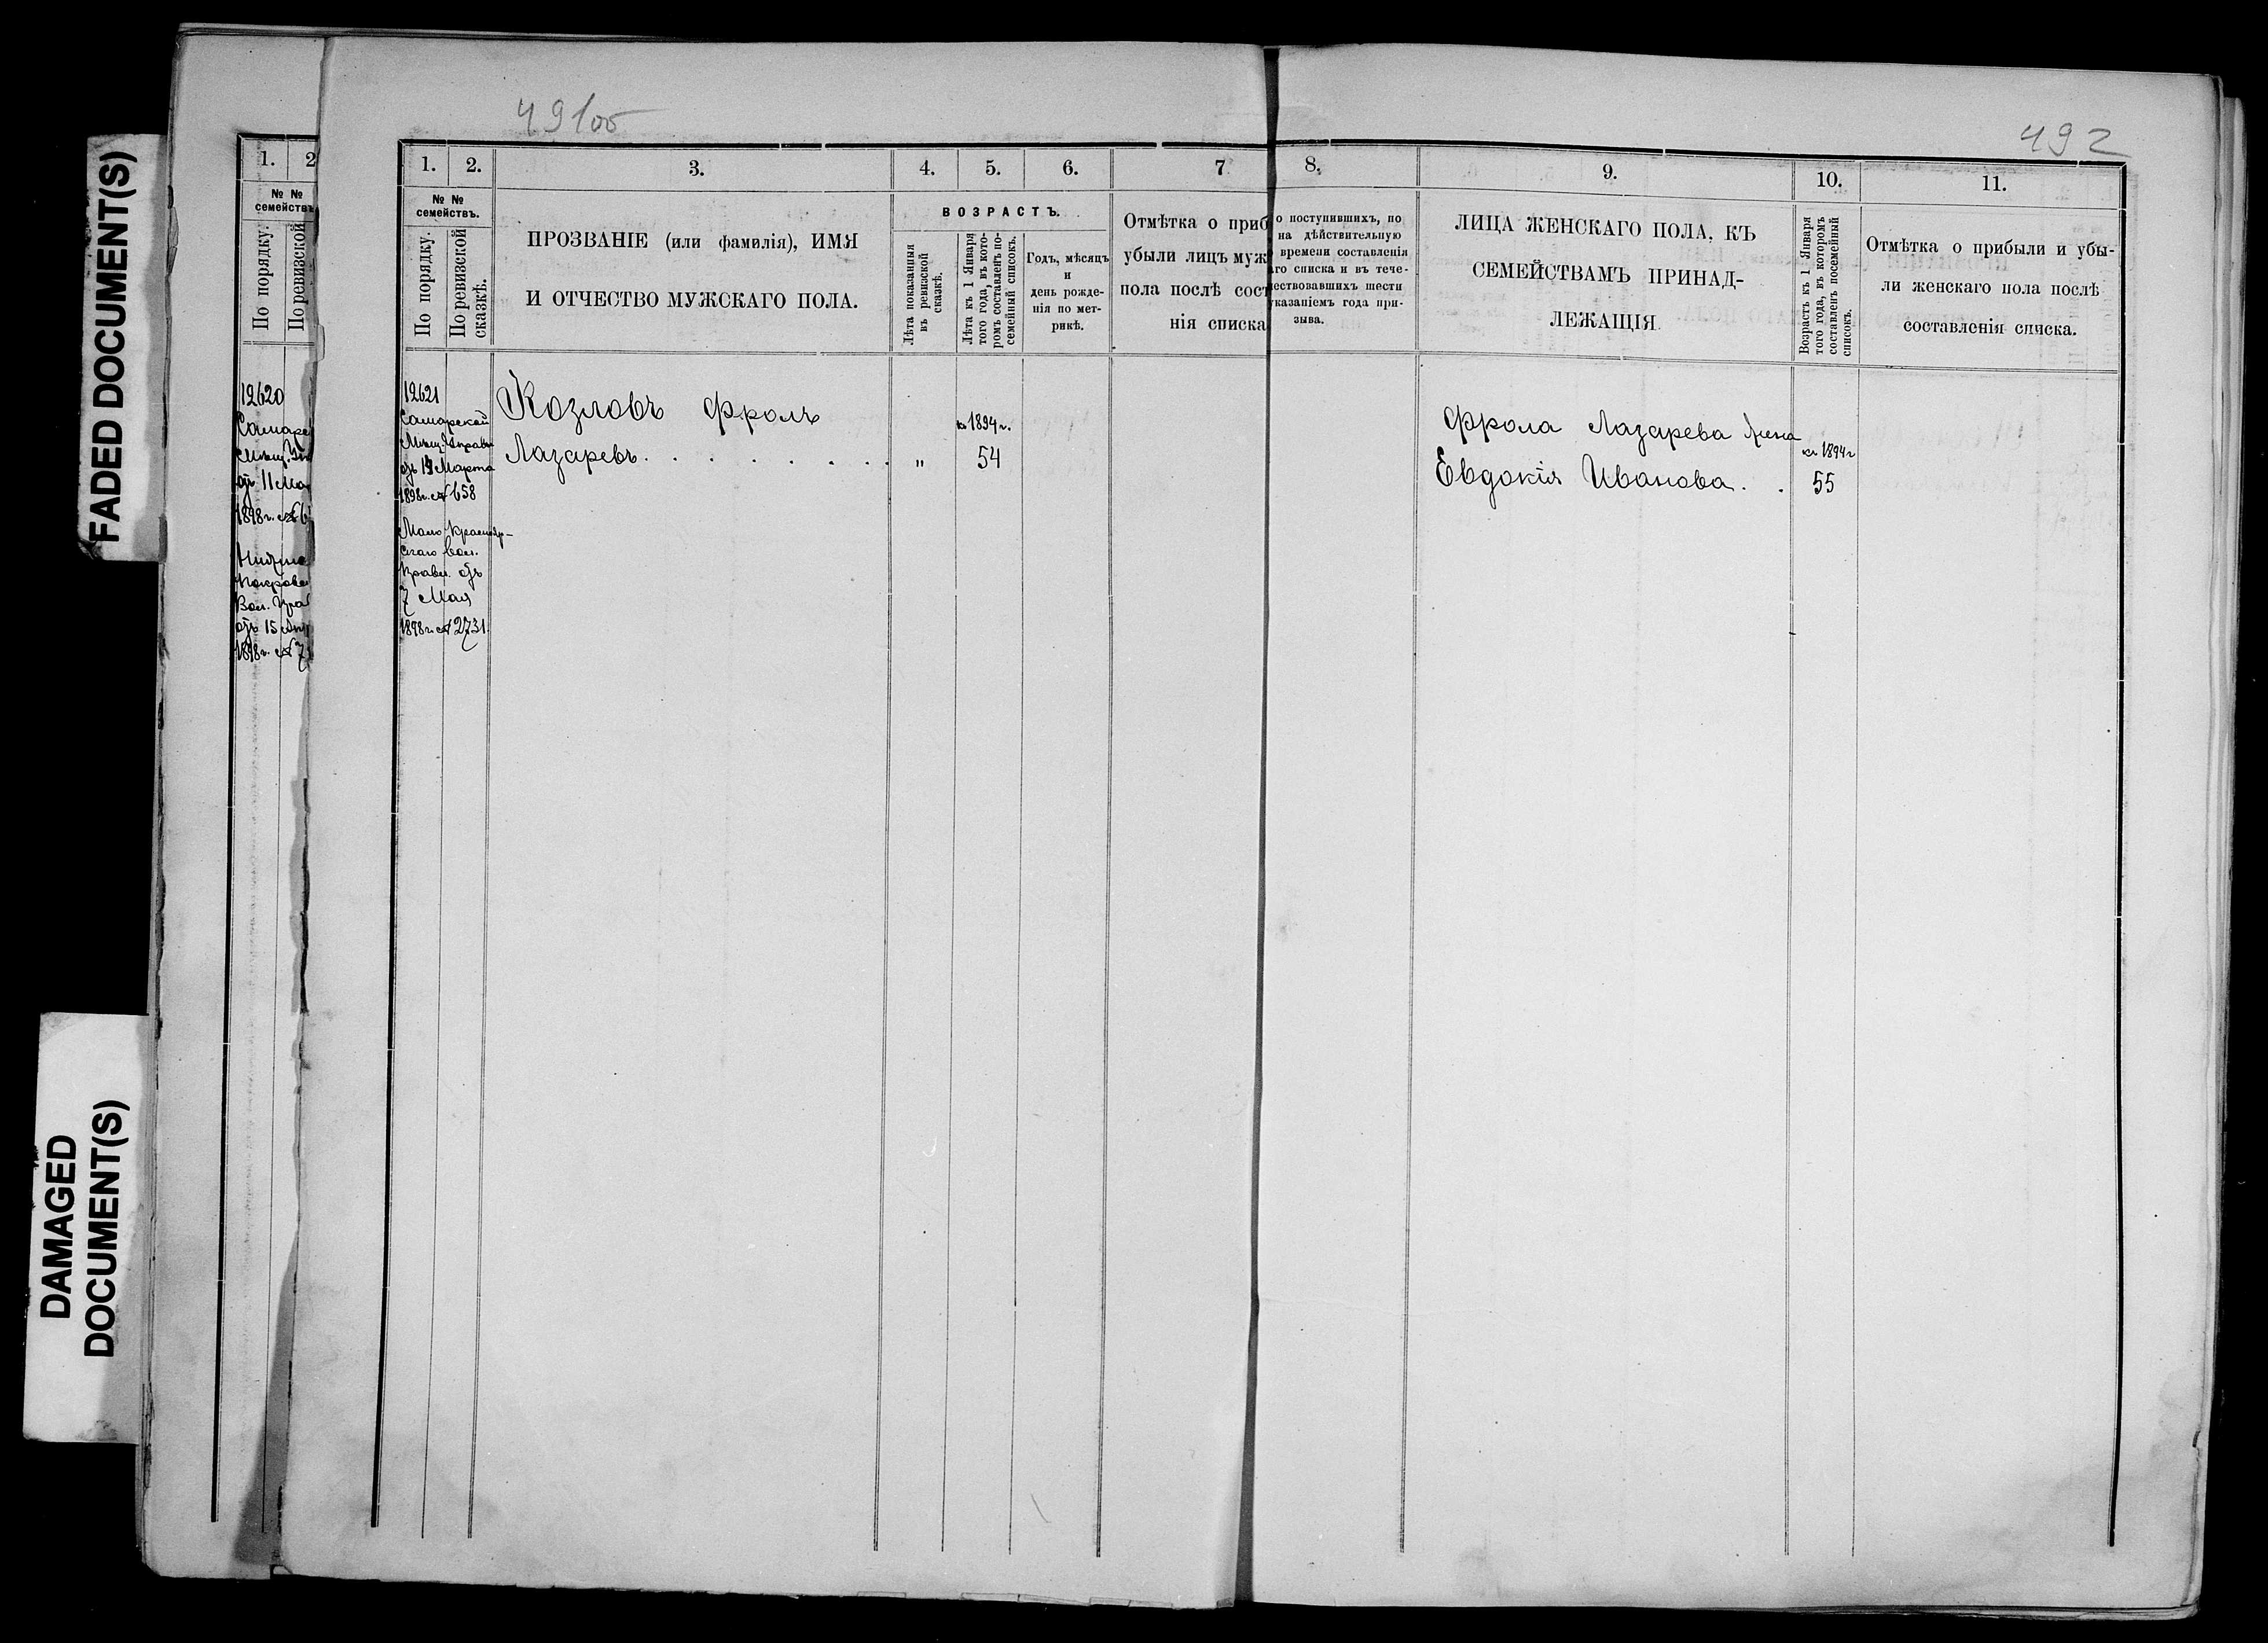 FADED DOCUMENT(S)
DAMAGED
DOCUMENT(S)
1.
2
№ №
семействъ
По порядку.
По ревизской
12620
1898 г. №
491об
492
1. 2. 3. 4. 5. 6. 7 8. 9. 10. 11.
№ №
семействъ.
По порядку.
По ревизской
сказкѣ.
ПРОЗВАНІЕ (или фамилія), ИМЯ
И ОТЧЕСТВО МУЖСКАГО ПОЛА.
ВОЗРАСТЪ.
Лѣта показанныя
въ ревизской
сказкѣ.
Лѣта къ 1 Января
того года, въ кото-
ромъ составленъ по-
семейный списокъ.
Годъ, мѣсяцъ
и
день рожде-
нія по мет-
рикѣ.
Отмѣтка о приб
убыли лицъ муж
пола послѣ сост
нія списка
о поступившихъ, по
на дѣйствительную
времени составленія
го списка и въ тече-
ествовавшихъ шести
казаніемъ года при-
зыва.
ЛИЦА ЖЕНСКАГО ПОЛА, КЪ
СЕМЕЙСТВАМЪ ПРИНАД-
ЛЕЖАЩІЯ
Возрастъ къ 1 Января
того года, въ которомъ
составленъ посемейный
списокъ.
Отмѣтка о прибыли и убы-
ли женскаго пола послѣ
составленія списка.
12621
Самарской
Мѣщ. Управы
отъ Марта
1898 г. № 658
Мало-Краснояр-
скаго Вол.
Правл. отъ
7 Мая
1898 г. № 2731.
Козловъ Фролъ
Лазаревъ . . . . . . . . "
къ 1894 г.
54
Фрола Лазарева жена
Евдокія Иванова . .
къ 1894 г
55